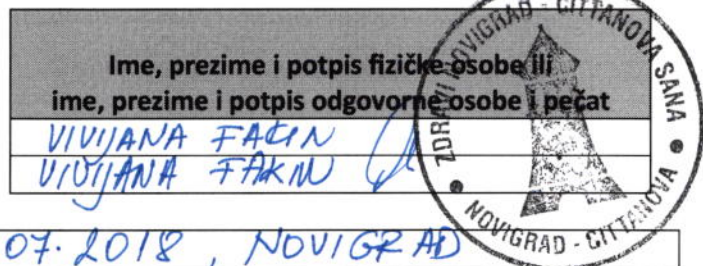 Ime, prezime i potpis fizičke osobe ili
ime, prezime i potpis odgovorne osobe i pečat
VIVIJANA FAČIN
VIVIJANA FAKIN
07.2018, NOVIGRAD
ZDRAVI NOVIGRAD - CITTANOVA SANA
NOVIGRAD - CITTANOVA